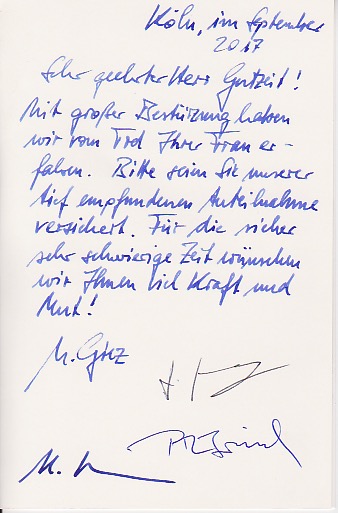 Köln, im September
2017
Sehr geehrter Herr Gutzeit!
Mit großer Bestürzung haben
wir vom Tod Ihrer Frau er-
fahren. Bitte seien Sie unserer
tief empfundenen Anteilnahme
versichert. Für die sicher
sehr schwierige Zeit wünschen
wir Ihnen viel Kraft und
Mut!
M. Götz